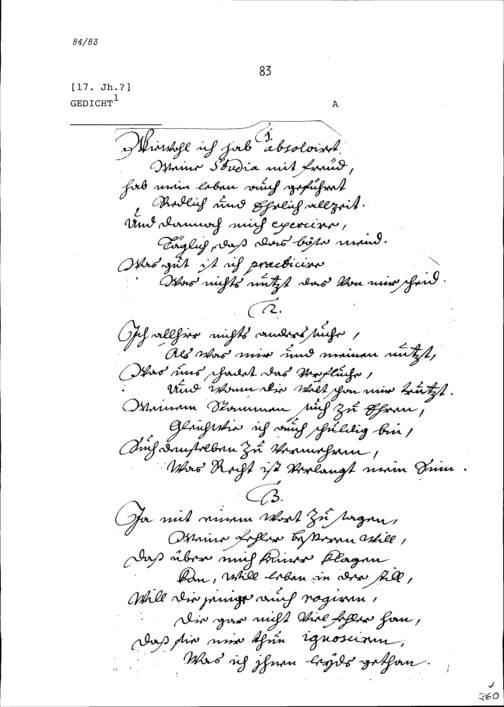 84/83
83
[17. Jh.?]
GEDICHT1
A
1.
Wiewohl ich hab absolvirt
Meine Studia mit freüd,
hab mein leben auch geführet
Redlich und Ehrlich allzeit.
Und dannoch mich exercire,
Täglich, daß das böse meid.
Was gut ist ich practicire
Was nichts nutzt das von mir scheid.
2.
Ich allhier nichts anders suche,
Als was mir und meinen nutzt,
Was uns schadet das verfluche,
Und wann die Welt schon mir trutzt.
Meinem Stammen such zu Ehren,
Gleichwie ich auch schuldig bin,
Auch denselben zu vermehren,
Was Recht ist verlangt mein Sinn.
3.
Ja mit einem Wort zu sagen,
Meine fehler beßeren will,
Daß über mich keiner klagen
Kan, will leben in der still,
Will die jenige auch regieren,
die gar nicht viel fehler han,
Daß sie mir thun ignosciren,
Was ich ihnen leyds gethan.
260